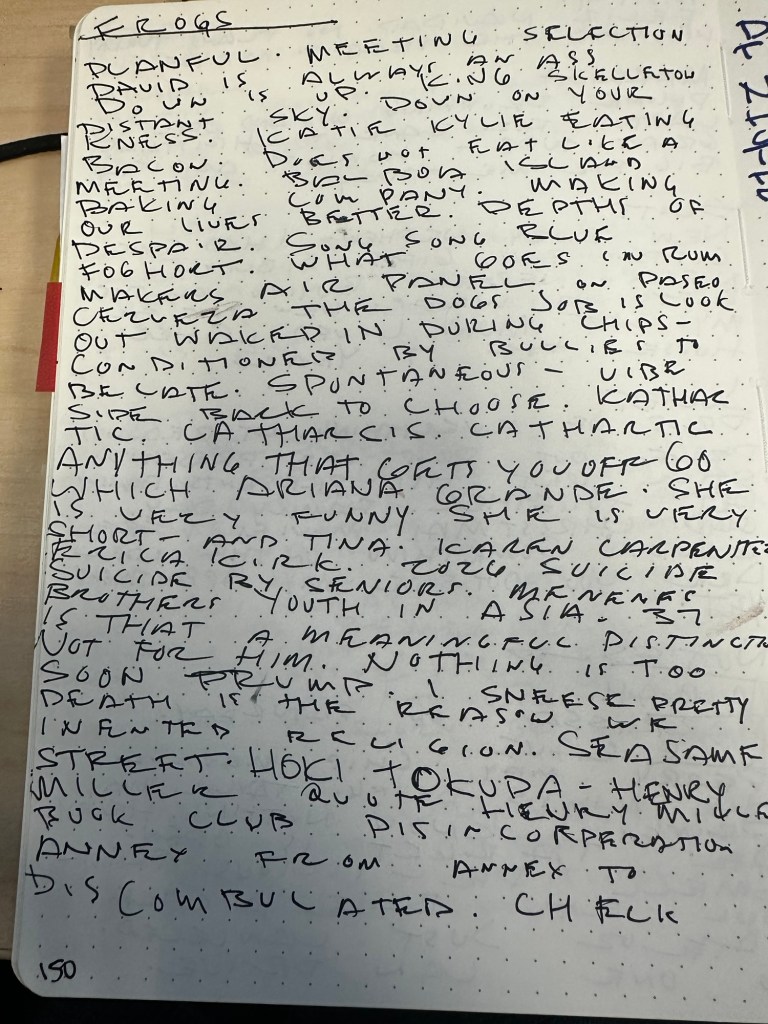 FROGS
PLANFUL. MEETING SELECTION
DAVID IS ALWAYS AN ASS
DOWN IS UP. KING SKELLETON
DISTANT SKY. DOWN ON YOUR
KNESS. KATIE KYLIE EATING
BACON. DOES NOT EAT LIKE A
MEETING. BALBOA ISLAND
BAKING COMPANY. MAKING
OUR LIVES BETTER. DEPTHS OF
DESPAIR. SONG SONG BLUE
FOGHORT. WHAT GOES IN RUM
MAKERS AIR PANEL ON PASEO
CERVEZA THE DOGS JOB IS LOOK
OUT WALKED IN DURING CHIPS-
CONDITIONED BY BULLIES TO
BE LATE. SPONTANEOUS - VIBE
SIDE BACK TO CHOOSE. KATHAR
TIC. CATHARCIS. CATHARTIC
ANYTHING THAT GETS YOU OFF GO
WHICH ARIANA GRANDE. SHE
IS VERY FUNNY SHE IS VERY
SHORT- AND TINA. KAREN CARPENTER
ERICA KIRK. 2026 SUICIDE
SUICIDE BY SENIORS. MENENES
BROTHERS YOUTH IN ASIA. 37
IS THAT A MEANINGFUL DISTINCTI
NOT FOR HIM. NOTHING IS TOO
SOON. I SNEESE PRETTY
DEATH IS THE REASON WE
INFENTED RELIGION. SEASAME
STREET. HOKI + OKUDA - HENRY
MILLER QUOTE HENRY MILLE
BOOK CLUB DISINCORPERATION
ANNEX FROM ANNEX TO
DISCOMBULATED. CHECK
150